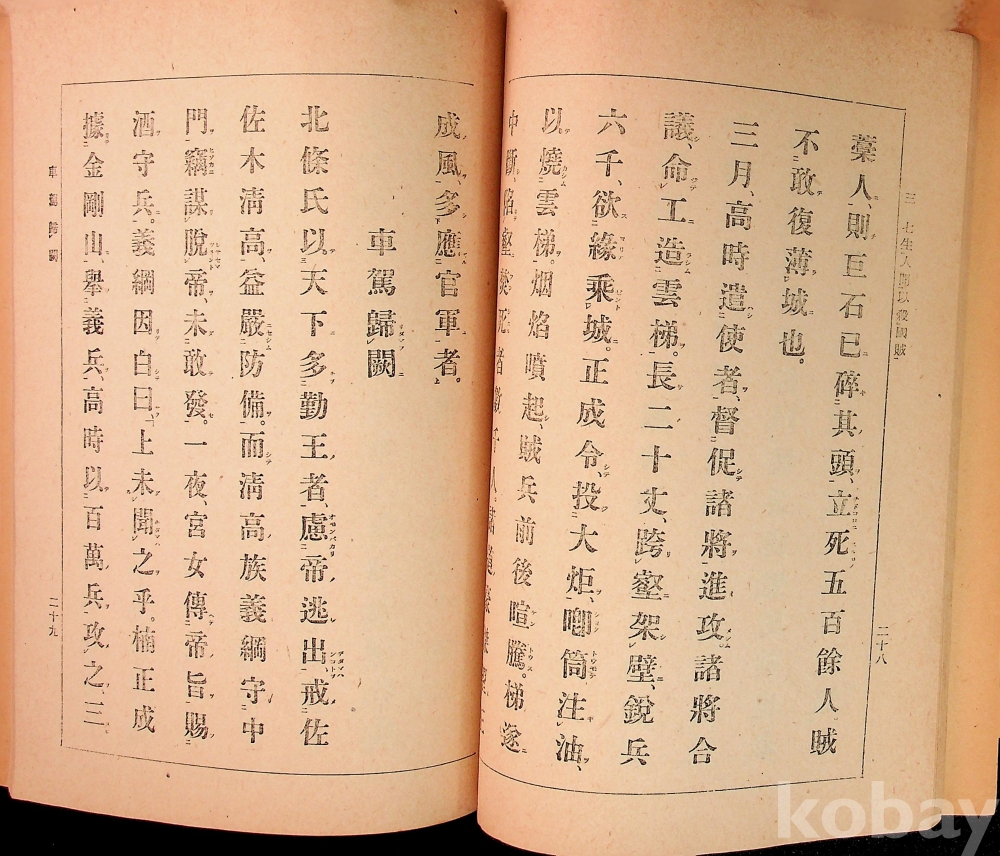 三 七生人間以殺國賊
二十八
藁人則巨石已碎其頭、立死五百餘人賊
不敢復薄城也。
三月、高時遣使者、督促諸將進攻諸將合
議、命工造雲梯。長二十丈、跨壑架壁、銳兵
六千、欲緣乘城。正成令投大炬、唧筒注油、
以燒雲梯。烟焰噴起、賊兵前後喧騰。梯遂
中斷、陷壑
成風、多應官軍者。
車駕歸闕
北條氏以天下多勤王者、慮帝逃出、戒佐
佐木淸高益嚴防備。而淸高族義綱守中
門、竊謀脫帝、未敢發。一夜、宮女傳帝旨賜
酒守兵。義綱因白曰、上未聞之乎。楠正成
據金剛山、舉義兵、高時以百萬兵攻之、三
車駕歸闕
二十九
kobay